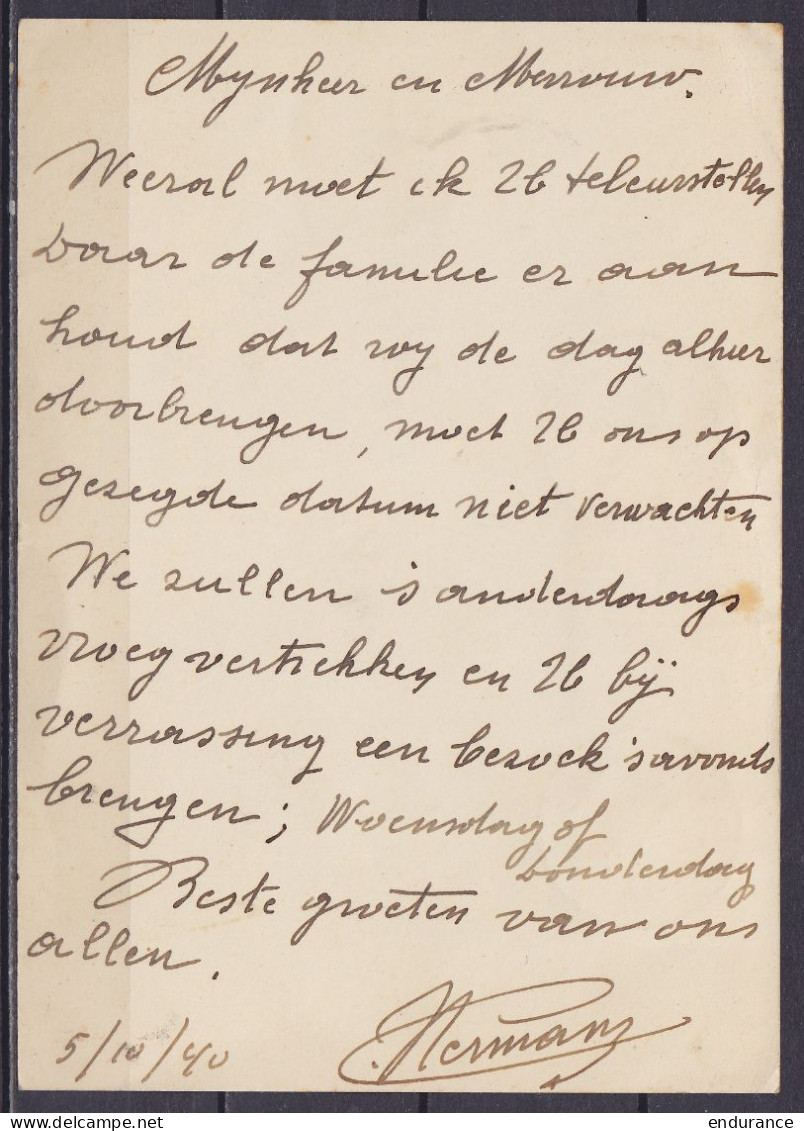 Mynheer en Mevrouw.
Weeral moet ik U teleurstellen
Daar de familie er aan
houd dat wy de dag alhier
doorbrengen, moet U ons op
gezegde datum niet verwachten
We zullen 's anderdaags
vroeg vertrekken en U bij
verrassing een bezoek 's avonds
brengen; Woensdag of
Donderdag
Beste groeten van ons
allen.
Hermans
5/10/40
delcampe.net
endurance